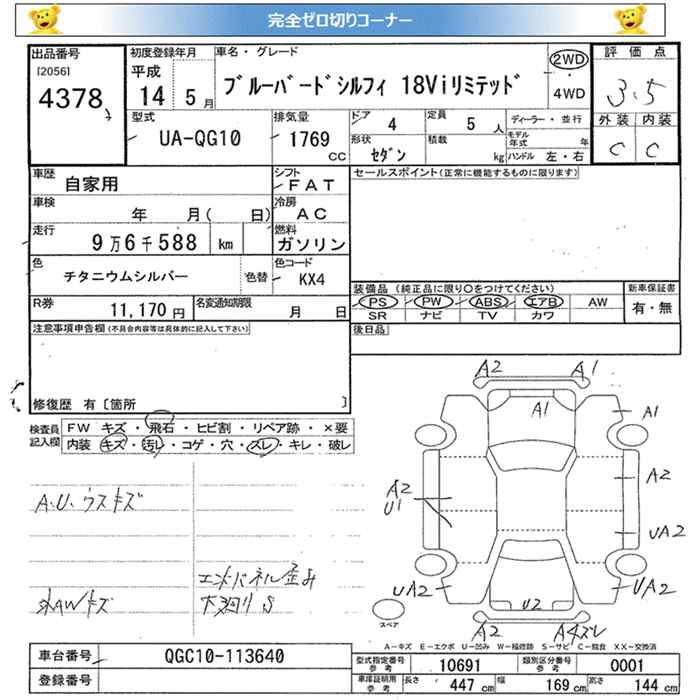 完全ゼロ切りコーナー
出品番号
[2056]
4378
初度登録年月
平成
14 5月
車名・グレード
ブルーバードシルフィ 18Viリミテッド
2WD
・
4WD
評価点
3.5
外装 内装
C C
型式
UA-QG10
排気量
1769
CC
ドア
4
定員
5人
形状
セダン
積載
kg
ディーラー・並行
モデル年式 年
ハンドル 左・右
車歴
自家用
シフト
FAT
車検
年 月( 日)
冷房
AC
走行
9万6千588 km
燃料
ガソリン
色
チタニウムシルバー
色替
色コード
KX4
R券
11,170円
名変通知期限
月 日
セールスポイント(正常に機能するものに限ります)
装備品 (純正品に限り〇をつけてください)
新車保証書
PS PW ABS エアB AW
SR ナビ TV カワ
有・無
後日品
注意事項申告欄(不具合内容等は具体的に記入して下さい)
修復歴 有〔箇所 〕
検査員記入欄
FW キズ・飛石・ヒビ割・リペア跡・×要
内装 キズ・汚レ・コゲ・穴・スレ・キレ・破レ
A.U.ウスキズ
エンドパネル歪み
AWキズ
S
A2 A1
A1
A1
A2
A2
U1
UA2
UA2
UA2
U2
A2
A4ズレ
スペア
A-キズ E-エクボ U-凹み W-補修跡 S-サビ C-腐食 XX-交換済
車台番号
QGC10-113640
登録番号
型式指定番号
参考
10691
類別区分番号
参考
0001
車庫証明用
参考
長さ 447cm 幅 169cm 高さ 144cm